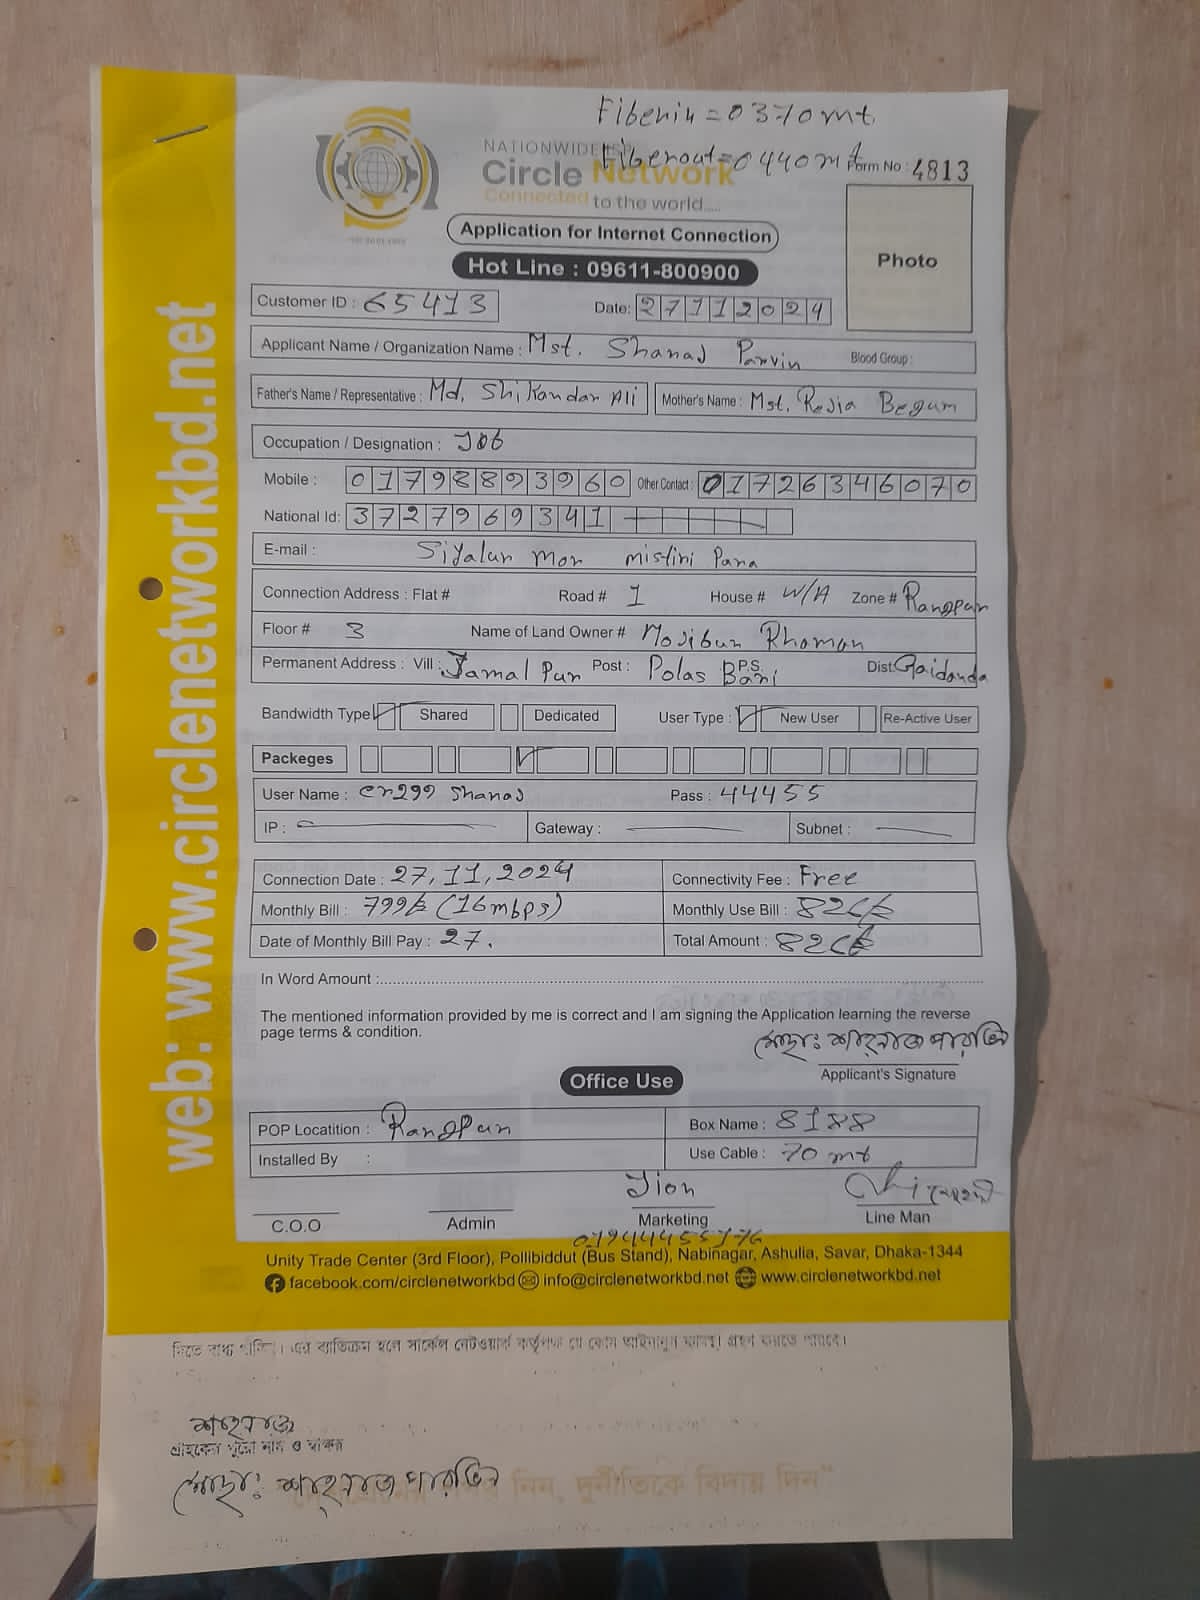 Fiberin = 0370 mt.
Fiberout = 0440 mt
NATIONWIDE ISP
Form No : 4813
Circle Network
Connected to the world....
Application for Internet Connection
Photo
Hot Line : 09611-800900
Customer ID : 65413 Date: 27112024
Applicant Name / Organization Name : Mst. Shanaj Parvin Blood Group :
Father's Name / Representative : Md. Shikandar Ali Mother's Name : Mst. Rejia Begum
Occupation / Designation : Job
Mobile : 01798893960 Other Contact : 01726346070
National Id: 3727969341
E-mail : Siyalur mor mistiri Para
Connection Address : Flat # Road # 1 House # W/A Zone # Rangpur
Floor # 3 Name of Land Owner # Mojibur Rhoman
Permanent Address : Vill : Jamal Pur Post : Polas Bari P.S. Dist: Gaibanda
Bandwidth Type Shared Dedicated User Type : New User Re-Active User
Packeges
User Name : cn299 shanaj Pass : 44455
IP : Gateway : Subnet :
Connection Date : 27,11,2024 Connectivity Fee : Free
Monthly Bill : 799৳ (16mbps) Monthly Use Bill :
Date of Monthly Bill Pay : 27. Total Amount :
In Word Amount :
The mentioned information provided by me is correct and I am signing the Application learning the reverse
page terms & condition.
মোছাঃ শাহনাজ পারভিন
Applicant's Signature
Office Use
POP Locatition : Rangpur Box Name : 8188
Installed By : Use Cable : 70 mt
Jion
C.O.O Admin Marketing Line Man
Unity Trade Center (3rd Floor), Pollibiddut (Bus Stand), Nabinagar, Ashulia, Savar, Dhaka-1344
facebook.com/circlenetworkbd info@circlenetworkbd.net www.circlenetworkbd.net
web: www.circlenetworkbd.net
দিতে বাধ্য থাকিব। এর ব্যতিক্রম হলে সার্কেল নেটওয়ার্ক কর্তৃপক্ষ যে কোন আইনানুগ ব্যবস্থা গ্রহণ করতে পারবে।
শাহনাজ
গ্রাহকের পুরো নাম ও স্বাক্ষর
মোছা: শাহনাজ পারভিন
নিন, দুর্নীতিকে বিদায় দিন"